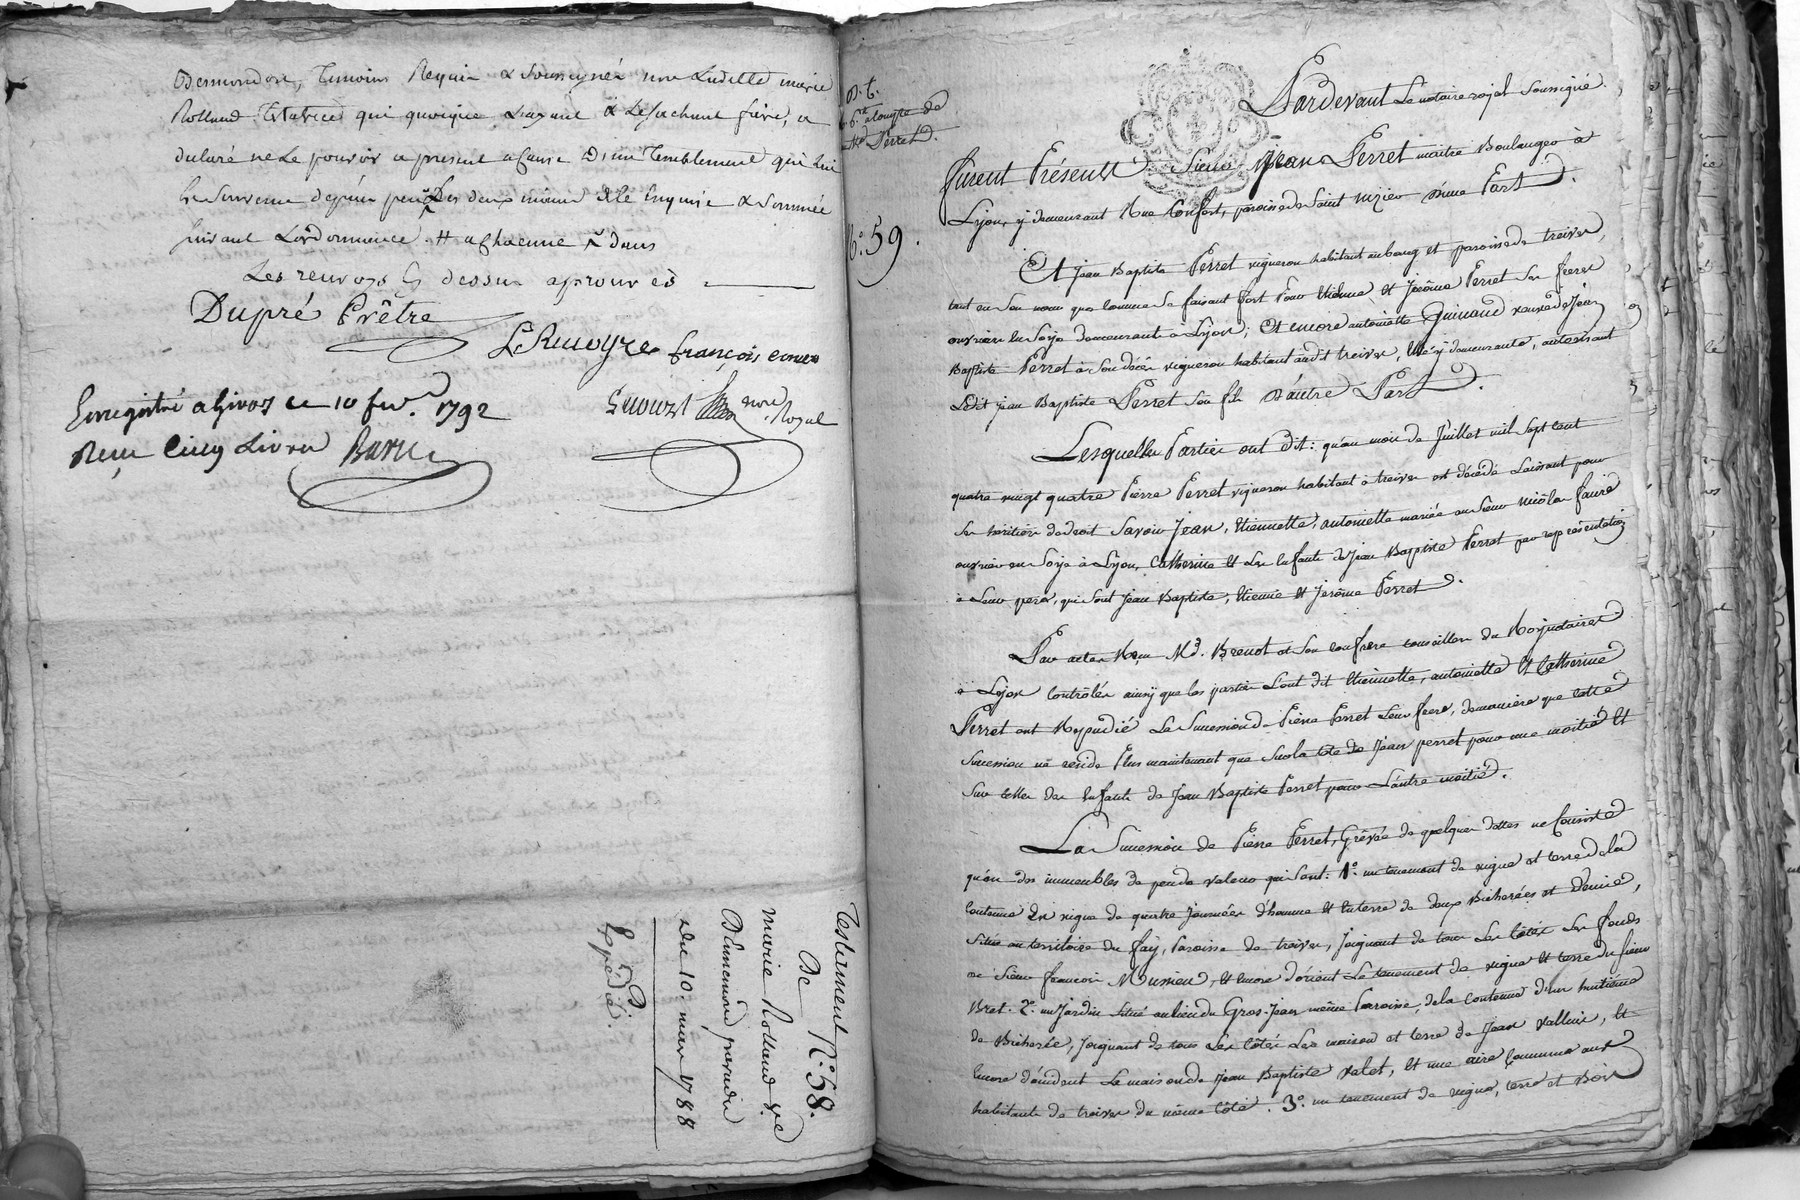 Temoins Requis & Soussignés non Laditte marie
Rolland Testatrice qui quoique &
declaré ne Le pouvoir a present a Cause D'un Tremblement qui Lui
Est Survenu depuis deux mois de ce Enquise & Sommée
Suivant L'ordonnance
Les renvoys cy dessus approuvés
Dupré Prêtre
françois
Royal
Enregistré a Givors ce 10 fev. 1792
Reçu Cinq Livres
Testament N.º 58.
De
marie Rolland V.e
Du 10. mars 1788
Expedié.
Perret
N.º 59.
Pardevant Le notaire royal Soussigné.
furent Présents Sieur Jean Perret maitre Boulanger à
Lyon, y demeurant Rue Confort, paroisse de Saint nizier d'une Part.
Et jean Baptiste Perret vigneron habitant au bourg et paroisse de treives,
tant en Son nom que comme Se faisant fort Pour Etienne Et Jérôme Perret Ses freres
ouvriers En Soye demeurant à Lyon; Et encore antoinette Guinand veuve de Jean
Baptiste Perret à Son décès vigneron habitant audit treives, Elle y demeurante, autorisant
Ledit jean Baptiste Perret Son fils D'autre Part.
Lesquelles Parties ont dit: qu'au mois de Juillet mil Sept Cent
quatre vingt quatre Pierre Perret vigneron habitant à treives est décédé Laissant pour
Ses héritiers de droit Savoir Jean, Etiennette, antoinette mariée au Sieur nicolas faure
ouvrier en Soye à Lyon, Catherine Et Les Enfants de Jean Baptiste Perret par représentation
à Leur pere, qui Sont Jean Baptiste, Etienne Et Jerôme Perret.
Par actes Reçu M.e Brenot et Son confrere conseillers du Roy notaires
à Lyon Contrôlés ainsy que les parties L'ont dit Etiennette, antoinette Et Catherine
Perret ont Repudié La Succession de Pierre Perret Leur frere, de maniere que Cette
Succession ne réside Plus maintenant que Sur la tête de Jean perret pour une moitié Et
Sur Celle des Enfants de Jean Baptiste Perret pour L'autre moitié.
La Succession de Pierre Perret, Grévée de quelques dettes ne Consiste
qu'en des immeubles de peu de valeur qui Sont: 1.º un tenement de vigne et terre de la
Contenue En vigne de quatre Journées d'homme Et En terre de deux Bicherées et Demie,
Situé au territoire du fay, Paroisse de treives, Joignant de tous Les Côtés Les fonds
de Sieur françois Et encore d'orient Le tenement de vigne Et terre du Sieur
Bret. 2.º un Jardin Situé au lieu du Gros-Jean même Paroisse, de la Contenue d'un huitième
de Bicherée, Joignant de tous Les Côtés Les maison et terre de Jean Et
Encore La maison de Jean Baptiste Valet, Et une aire Commune aux
habitants de treives du même Côté. 3.º un tenement de vigne, terre et Bois